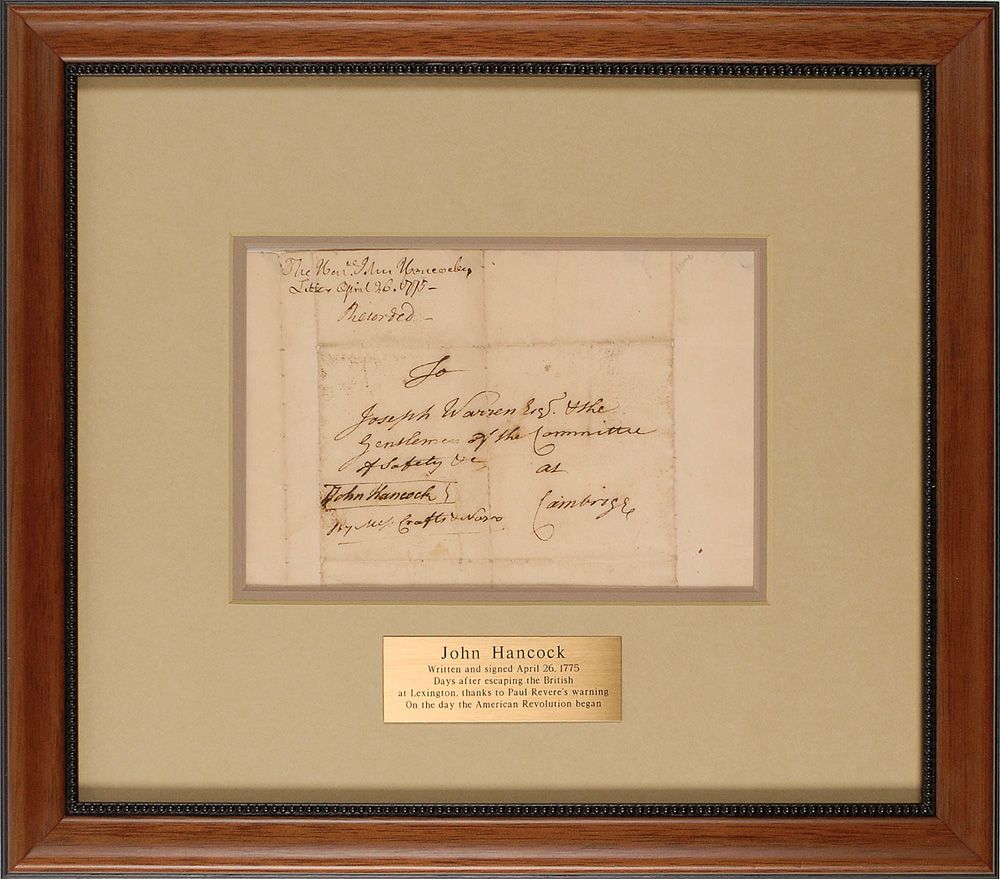 The Honle. John Hancocks
Letter April 26. 1775 -
Recorded -
To
Joseph Warren Esqr. & the
Gentlemen of the Committee
of Safety &c
at
John Hancock
Cambrige
By Mess. Crafts &
John Hancock
Written and signed April 26, 1775
Days after escaping the British
at Lexington, thanks to Paul Revere's warning
On the day the American Revolution began